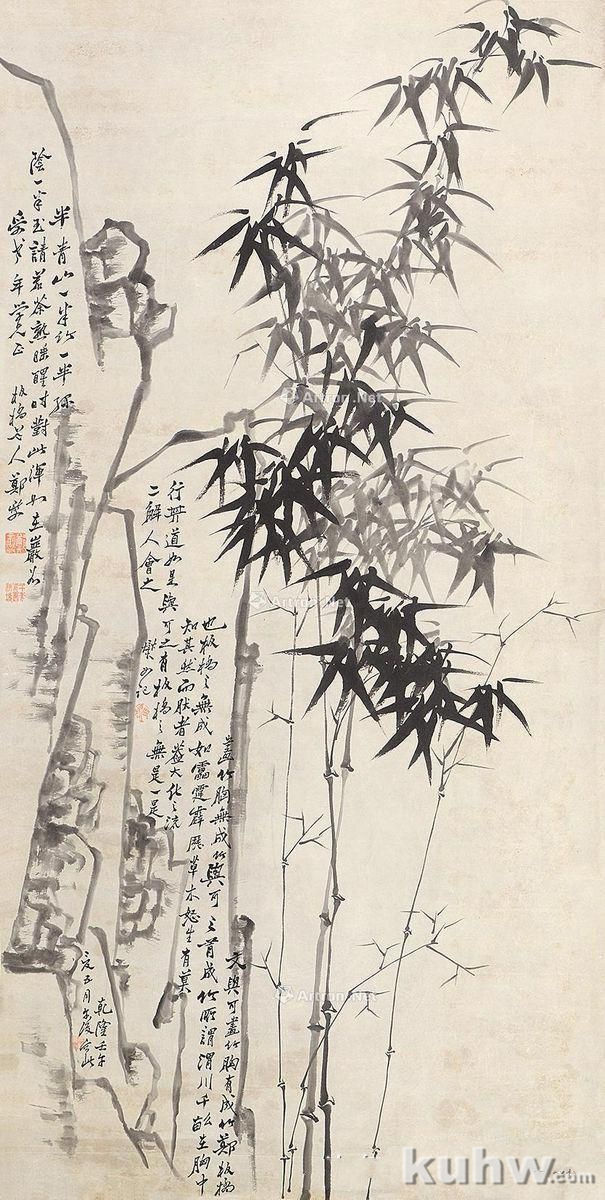 半青山一半竹一半綠
陰一半玉請君茶熟睡醒時對此渾如在巖谷
年學兄正 板橋老人鄭燮
文與可畫竹胸有成竹鄭板橋
畫竹胸無成竹與可之有成竹所謂渭川千畝在胸中
也板橋之無成如雷霆霹靂草木怒生有莫
知其然而然者蓋大化之流
行其道如是與可之有板橋之無是一是
二解人會之 燮又記
乾隆壬午
夏五月午後寫此
Artron.Net
Artron.Net
Artron.Net
kuhw.com